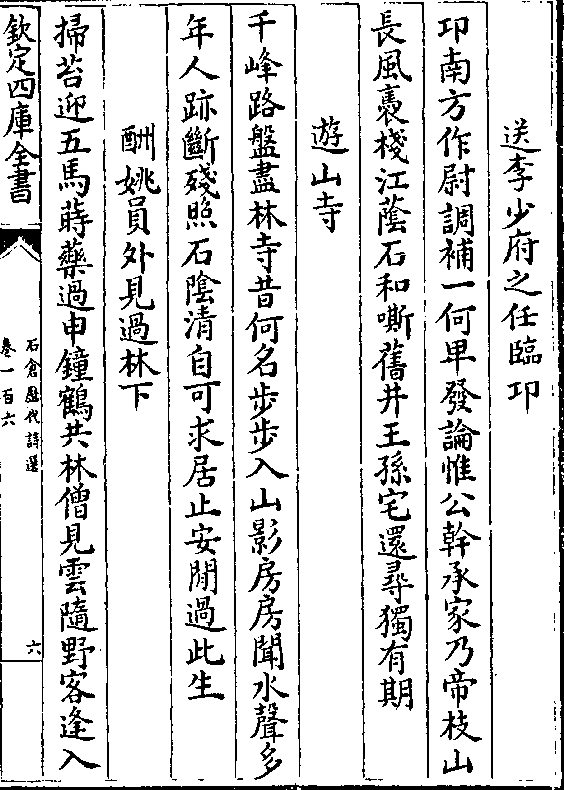 送李少府之任臨卭
卭南方作尉調補一何早發論惟公幹承家乃帝枝山
長風裊棧江蔭石和嘶舊井王孫宅還尋獨有期
遊山寺
千峰路盤盡林寺昔何名步步入山影房房聞水聲多
年人跡斷殘照石陰清自可求居止安閒過此生
酬姚員外見過林下
掃苔迎五馬蒔藥過申鐘鶴共林僧見雲隨野客逢入
欽定四庫全書
石倉歷代詩選
卷一百六
六